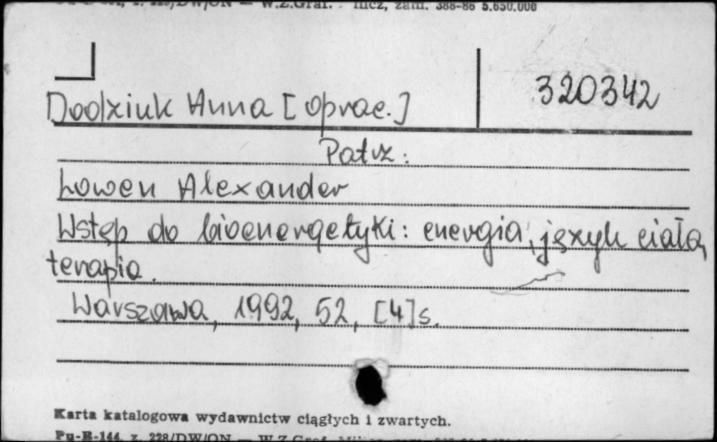 W.Z.Graf. zam. 388-86 5.650.000
320342
Dodziuk Anna [oprac.]
Patrz:
Lowen Alexander
Wstęp do bioenergetyki: energia, język ciała,
terapia.
Warszawa, 1992, 52, [4]s.
Karta katalogowa wydawnictw ciągłych i zwartych.
Pu-B-144, z. 228/DW/ON — W.Z.Graf.